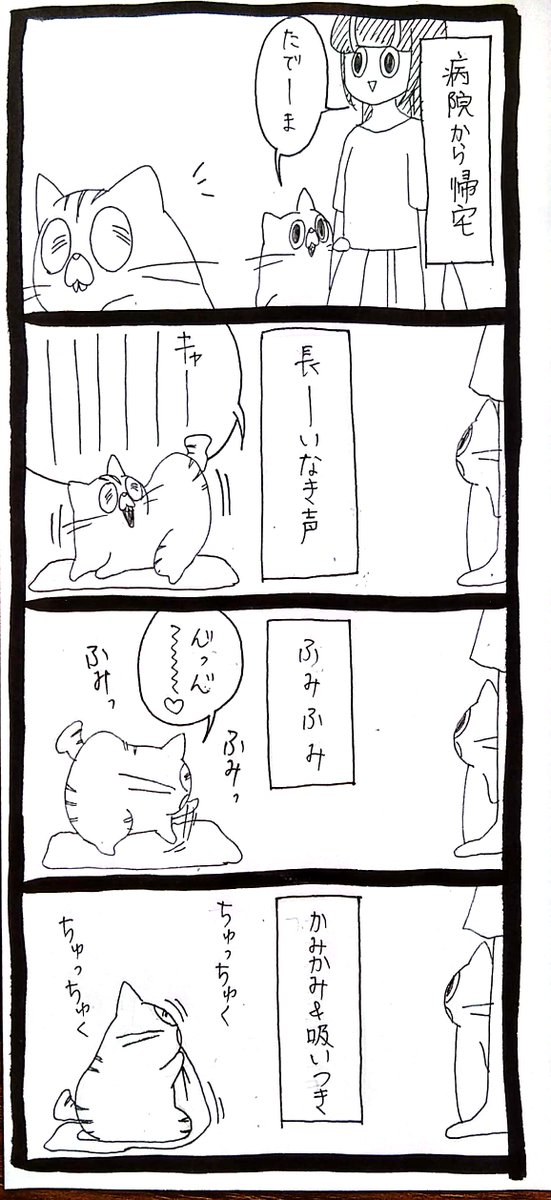 病院から帰宅
たでーま
長ーいなき声
キャー
ふみふみ
んっん〜〜〜〜♡
ふみっ
ふみっ
かみかみ&吸いつき
ちゅっちゅく
ちゅっちゅく